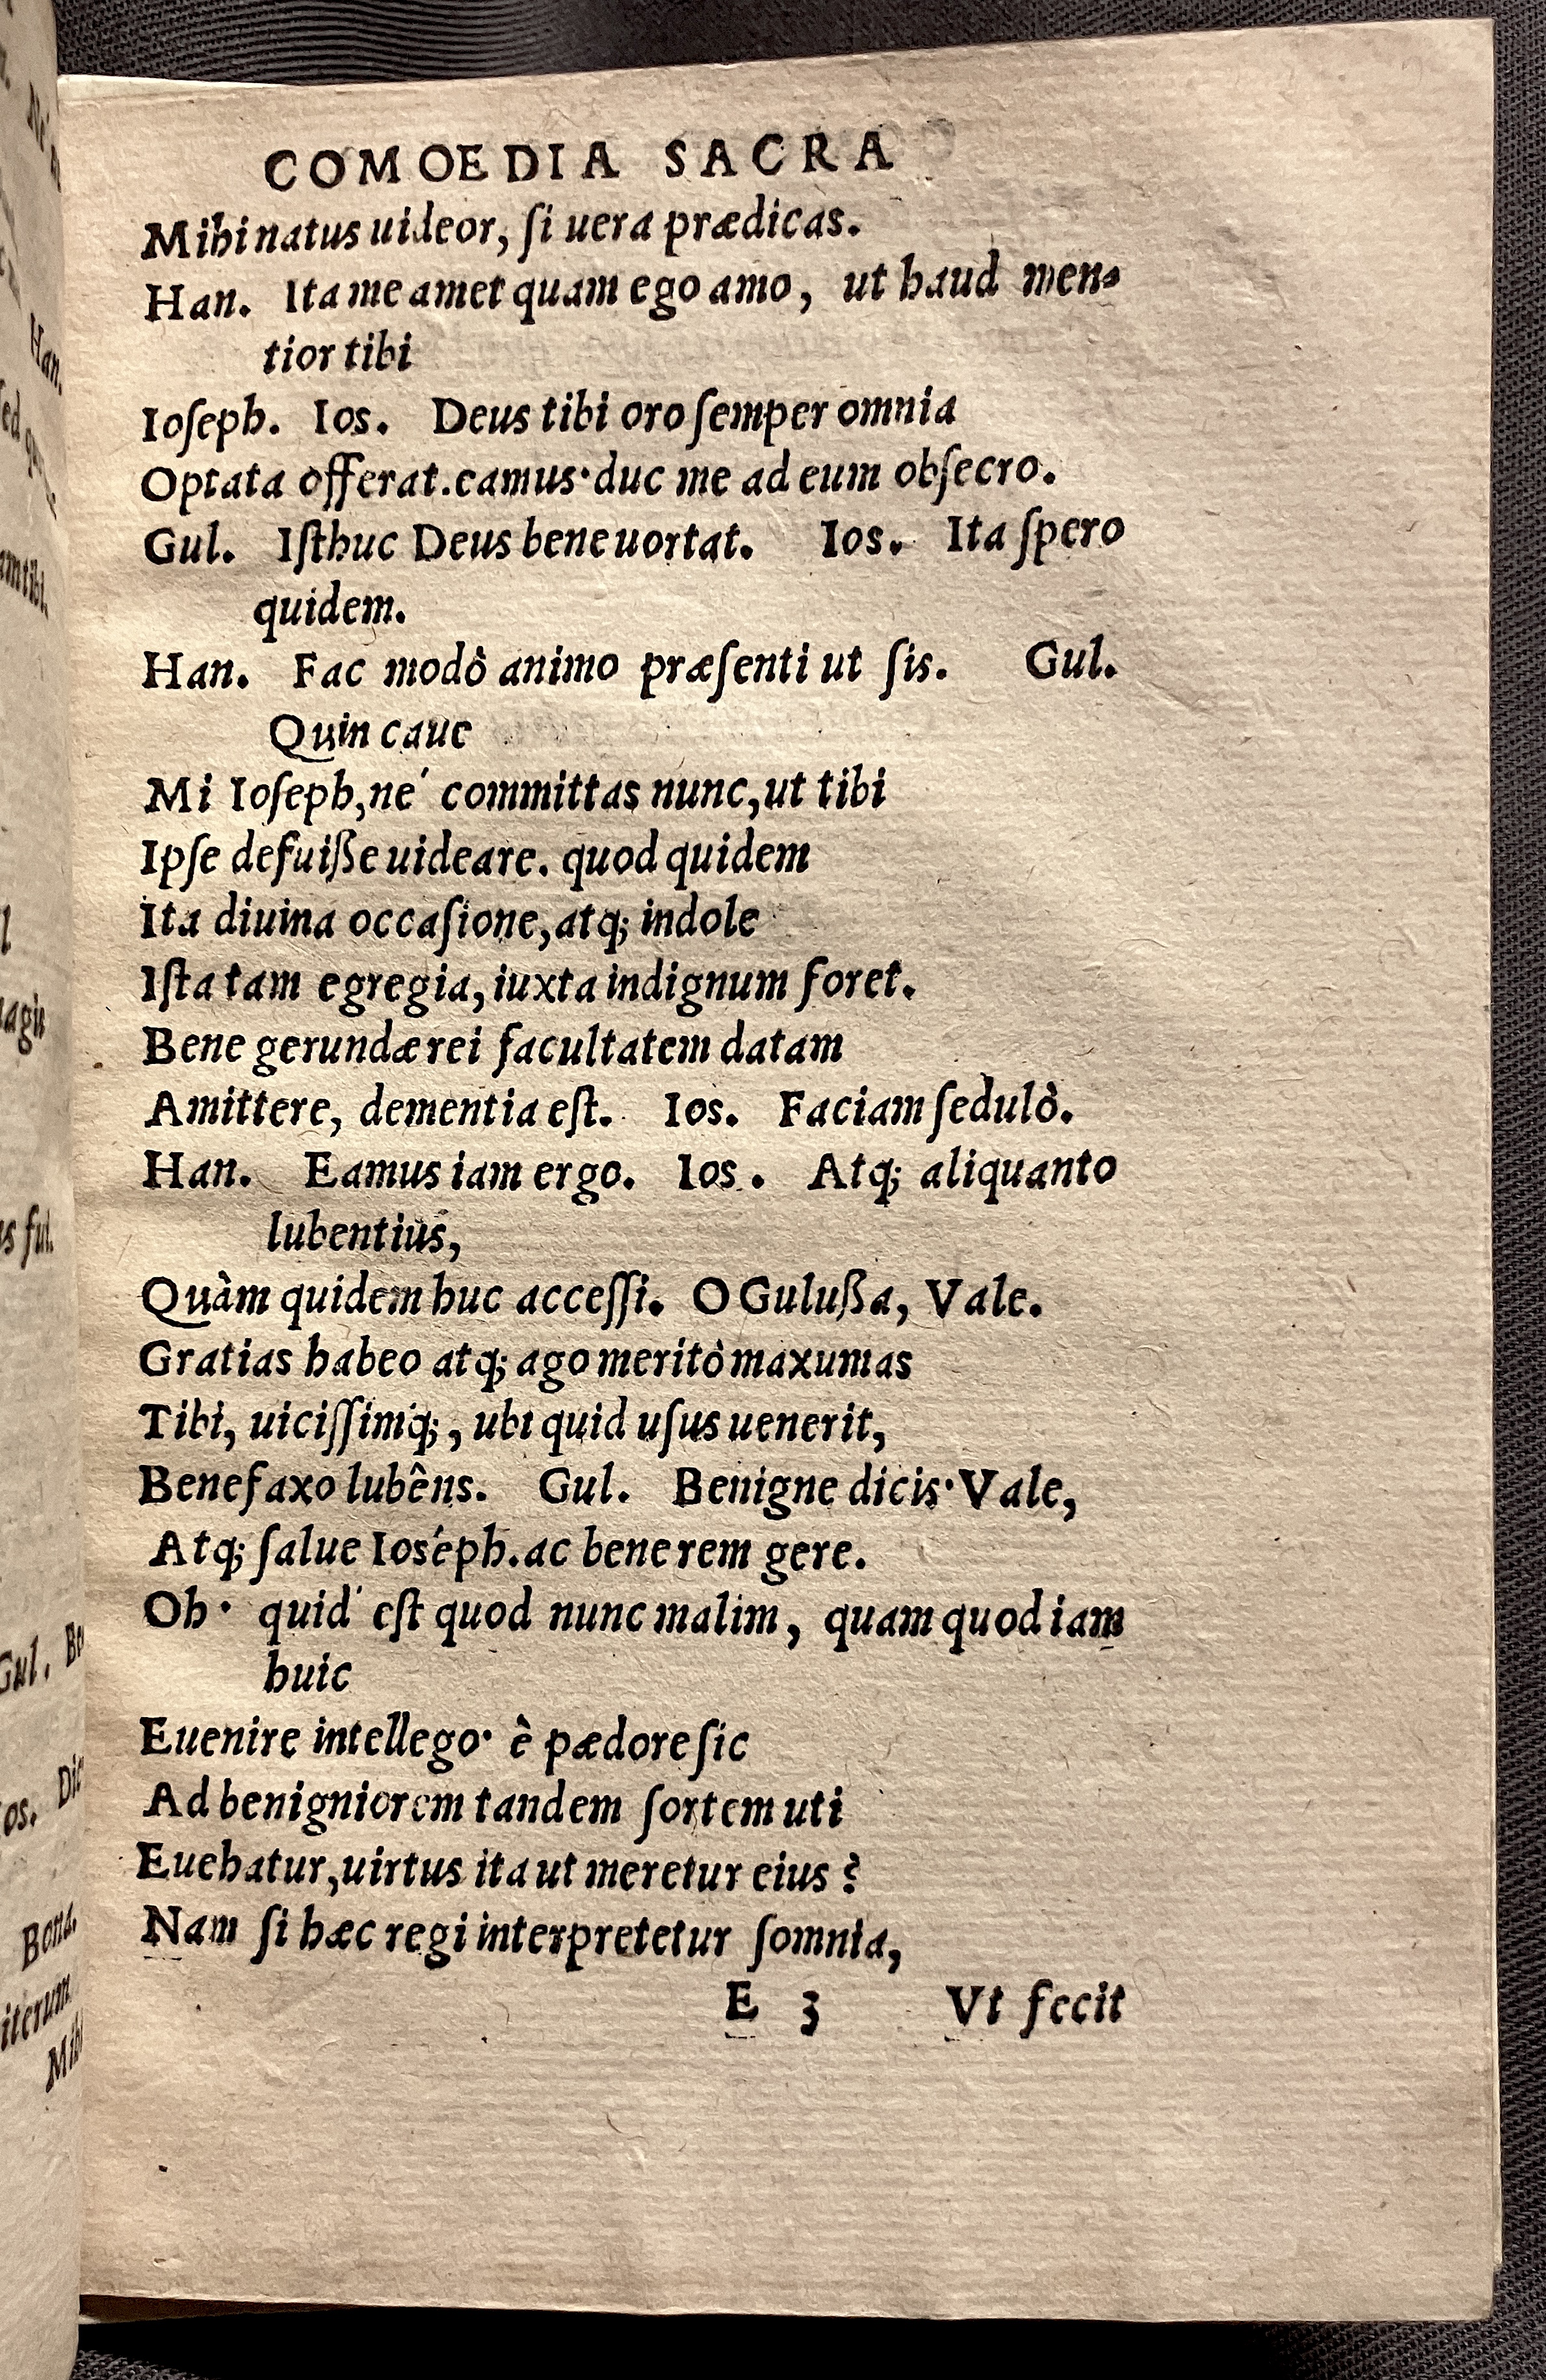 COMOEDIA SACRA
Mihi natus uideor, ſi uera prædicas.
Han. Ita me amet quam ego amo, ut haud men-
tior tibi
Ioſeph. Ios. Deus tibi oro ſemper omnia
Optata offerat. eamus· duc me ad eum obſecro.
Gul. Iſthuc Deus bene uortat. Ios. Ita ſpero
quidem.
Han. Fac modò animo præſenti ut ſis. Gul.
Quin caue
Mi Ioſeph, né committas nunc, ut tibi
Ipſe defuiße uideare. quod quidem
Ita diuina occaſione, atq; indole
Iſta tam egregia, iuxta indignum foret.
Bene gerundæ rei facultatem datam
Amittere, dementia eſt. Ios. Faciam ſedulò.
Han. Eamus iam ergo. Ios. Atq; aliquanto
lubentius,
Quàm quidem huc acceſſi. O Gulußa, Vale.
Gratias habeo atq; ago meritò maxumas
Tibi, uiciſſimq;, ubi quid uſus uenerit,
Benefaxo lubêns. Gul. Benigne dicis· Vale,
Atq; ſalue Ioséph. ac bene rem gere.
Oh· quid' eſt quod nunc malim, quam quod iam
huic
Euenire intellego· è pædore ſic
Ad benigniorem tandem ſortem uti
Euehatur, uirtus ita ut meretur eius?
Nam ſi hæc regi interpretetur ſomnia,
E 3 Vt fecit